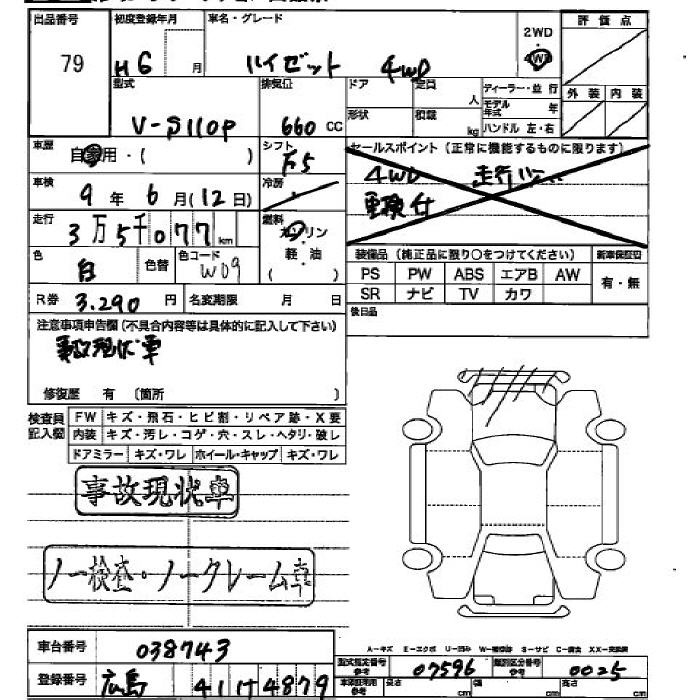 出品番号 初度登録年月 車名・グレード 2WD 評価点
79 H6 月 ハイゼット 4WD 4WD
型式 排気量 ドア 定員 人 ディーラー・並行 外装 内装
V-S110P 660 CC 形状 積載 kg モデル年式 年
ハンドル 左・右
車歴 自家用・( ) シフト F5 セールスポイント(正常に機能するものに限ります)
車検 9年6月(12日) 冷房 4WD 走行
車検付
走行 3万5千077km 燃料 ガソリン
軽・油
( )
色 白 色替 色コード W09 装備品(純正品に限り○をつけてください) 新車保証書
PS PW ABS エアB AW 有・無
SR ナビ TV カワ
R券 3.290円 名変期限 月 日 後日品
注意事項申告欄(不具合内容等は具体的に記入して下さい)
事故現状車
修復歴 有 〔箇所 〕
検査員記入欄 FW キズ・飛石・ヒビ割・リペア跡・X要
内装 キズ・汚レ・コゲ・穴・スレ・ヘタリ・破レ
ドアミラー キズ・ワレ ホイール・キャップ キズ・ワレ
事故現状車
ノー検査・ノークレーム車
車台番号 038743
A-キズ E-エクボ U-凹み W-補修跡 S-サビ C-腐食 XX-交換済
型式指定番号 参考 07596 類別区分番号 参考 0025
登録番号 広島 41 4879
長さ cm 幅 cm 高さ cm